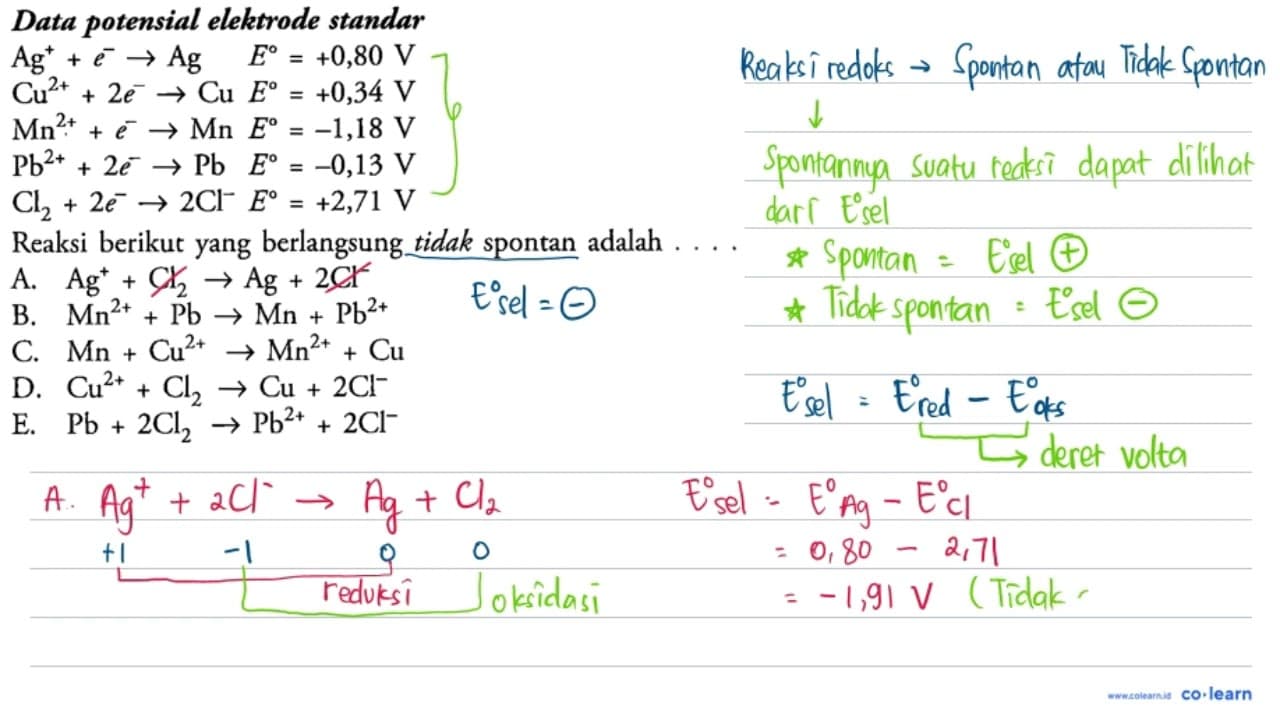 Data potensial elektrode standar
Ag⁺ + e⁻ → Ag E° = +0,80 V
Cu²⁺ + 2e⁻ → Cu E° = +0,34 V
Mn²⁺ + e⁻ → Mn E° = −1,18 V
Pb²⁺ + 2e⁻ → Pb E° = −0,13 V
Cl₂ + 2e⁻ → 2Cl⁻ E° = +2,71 V
Reaksi berikut yang berlangsung tidak spontan adalah . . . .
A. Ag⁺ + Cl₂ → Ag + 2Cl⁻
B. Mn²⁺ + Pb → Mn + Pb²⁺
C. Mn + Cu²⁺ → Mn²⁺ + Cu
D. Cu²⁺ + Cl₂ → Cu + 2Cl⁻
E. Pb + 2Cl₂ → Pb²⁺ + 2Cl⁻
E°sel = ⊖
Reaksi redoks → Spontan atau Tidak Spontan
↓
Spontannya suatu reaksi dapat dilihat
dari E°sel
* Spontan = E°sel ⊕
* Tidak spontan = E°sel ⊖
E°sel = E°red − E°oks
→ deret volta
A. Ag⁺ + 2Cl⁻ → Ag + Cl₂
+1 −1 0 0
reduksi oksidasi
E°sel = E°Ag − E°Cl
= 0,80 − 2,71
= −1,91 V (Tidak
www.colearn.id co·learn